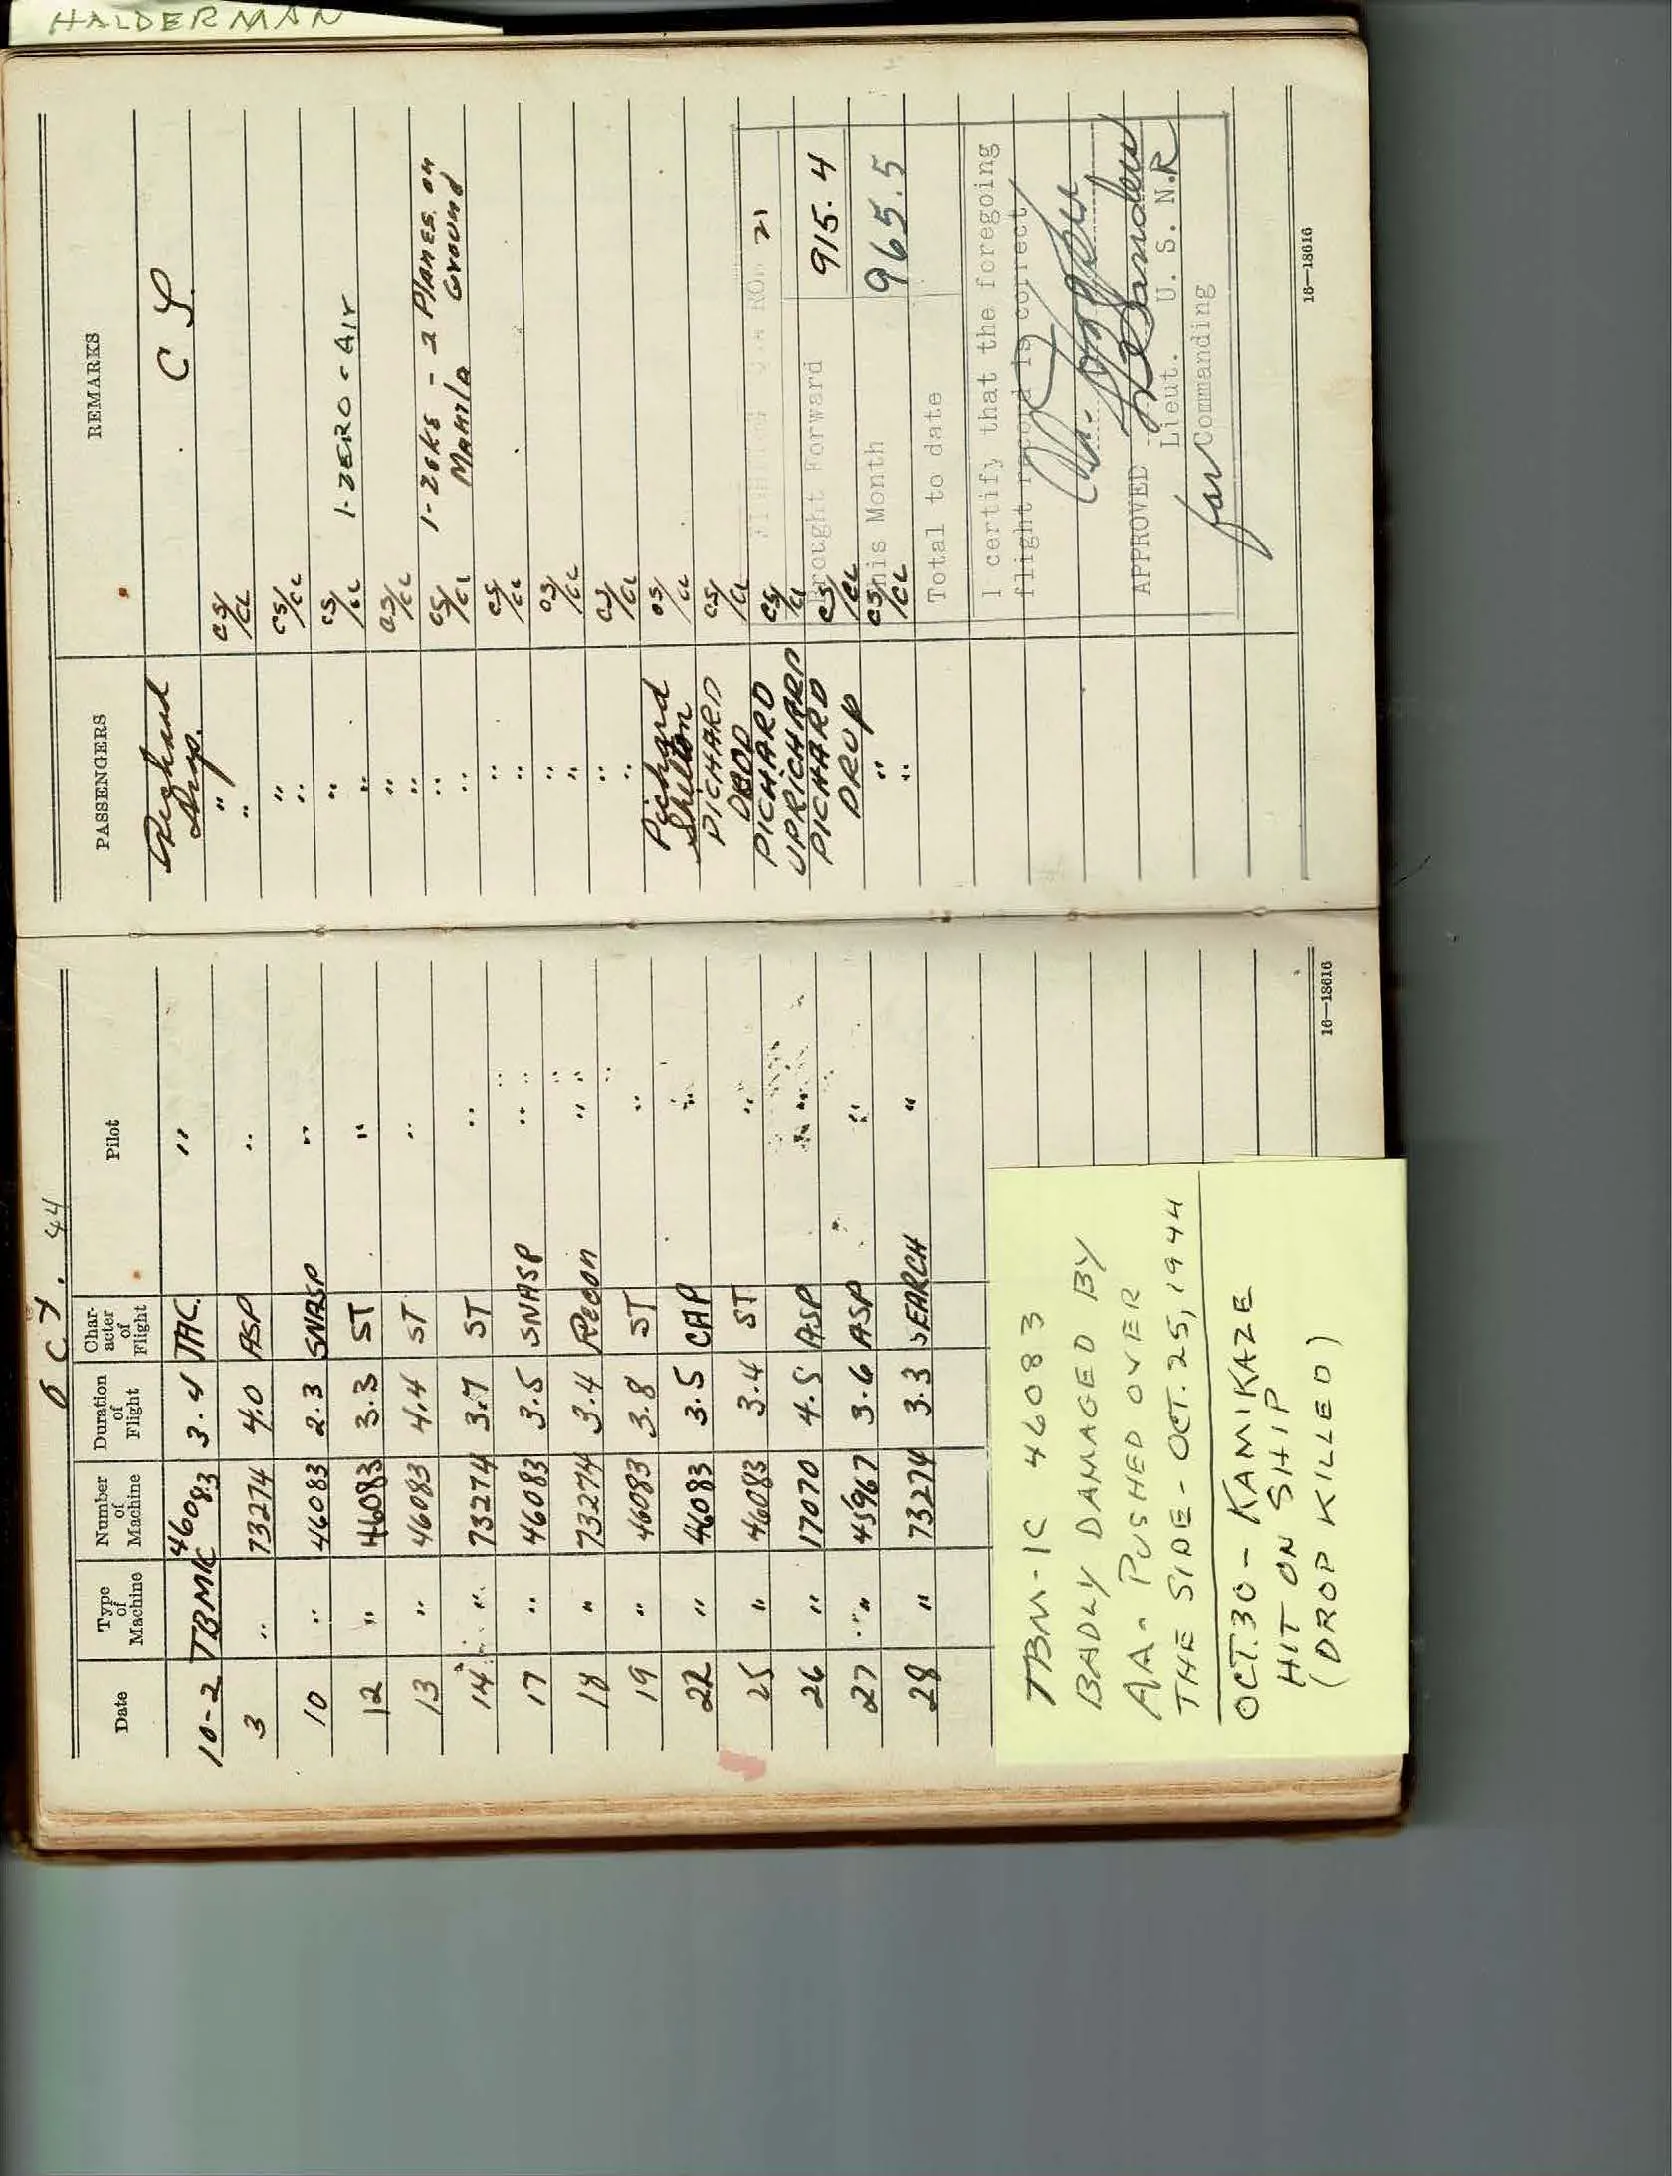 HALDERMAN
OCT. 44
Date Type of Machine Number of Machine Duration of Flight Character of Flight Pilot PASSENGERS REMARKS
10-2 TBM1C 46083 3.4 TAC. " Drop. C L
3 " 73274 4.0 ASP " " " CS/CL
10 " 46083 2.3 SNASP " " " CS/CL
12 " 46083 3.3 ST " " " CS/CL 1-ZERO-AIr
13 " 46083 4.4 ST " " " CS/CL
14 " 73274 3.7 ST " " " CS/CL 1-Zeke - 2 Planes on Ground Manila
17 " 46083 3.5 SNASP " " " CS/CL
18 " 73274 3.4 Recon " " " CS/CL
19 " 46083 3.8 ST " " " CS/CL
22 " 46083 3.5 CAP " Pichard Shelton CS/CL
25 " 46083 3.4 ST " PICHARD CS/CL
26 " 17070 4.5 ASP " PICHARD UPRICHARD CS/CL
27 " 45967 3.6 ASP " PICHARD DROP CS/CL
28 " 73274 3.3 SEARCH " " " CS/CL
21
Brought Forward 915.4
This Month
965.5
Total to date
I certify that the foregoing
flight record is correct
APPROVED
Lieut. U. S. N.R
for Commanding
16—18616
16—18616
TBM-1C 46083
BADLY DAMAGED BY
AA- PUSHED OVER
THE SIDE - OCT. 25, 1944
OCT. 30 - KAMIKAZE
HIT ON SHIP
(DROP KILLED)